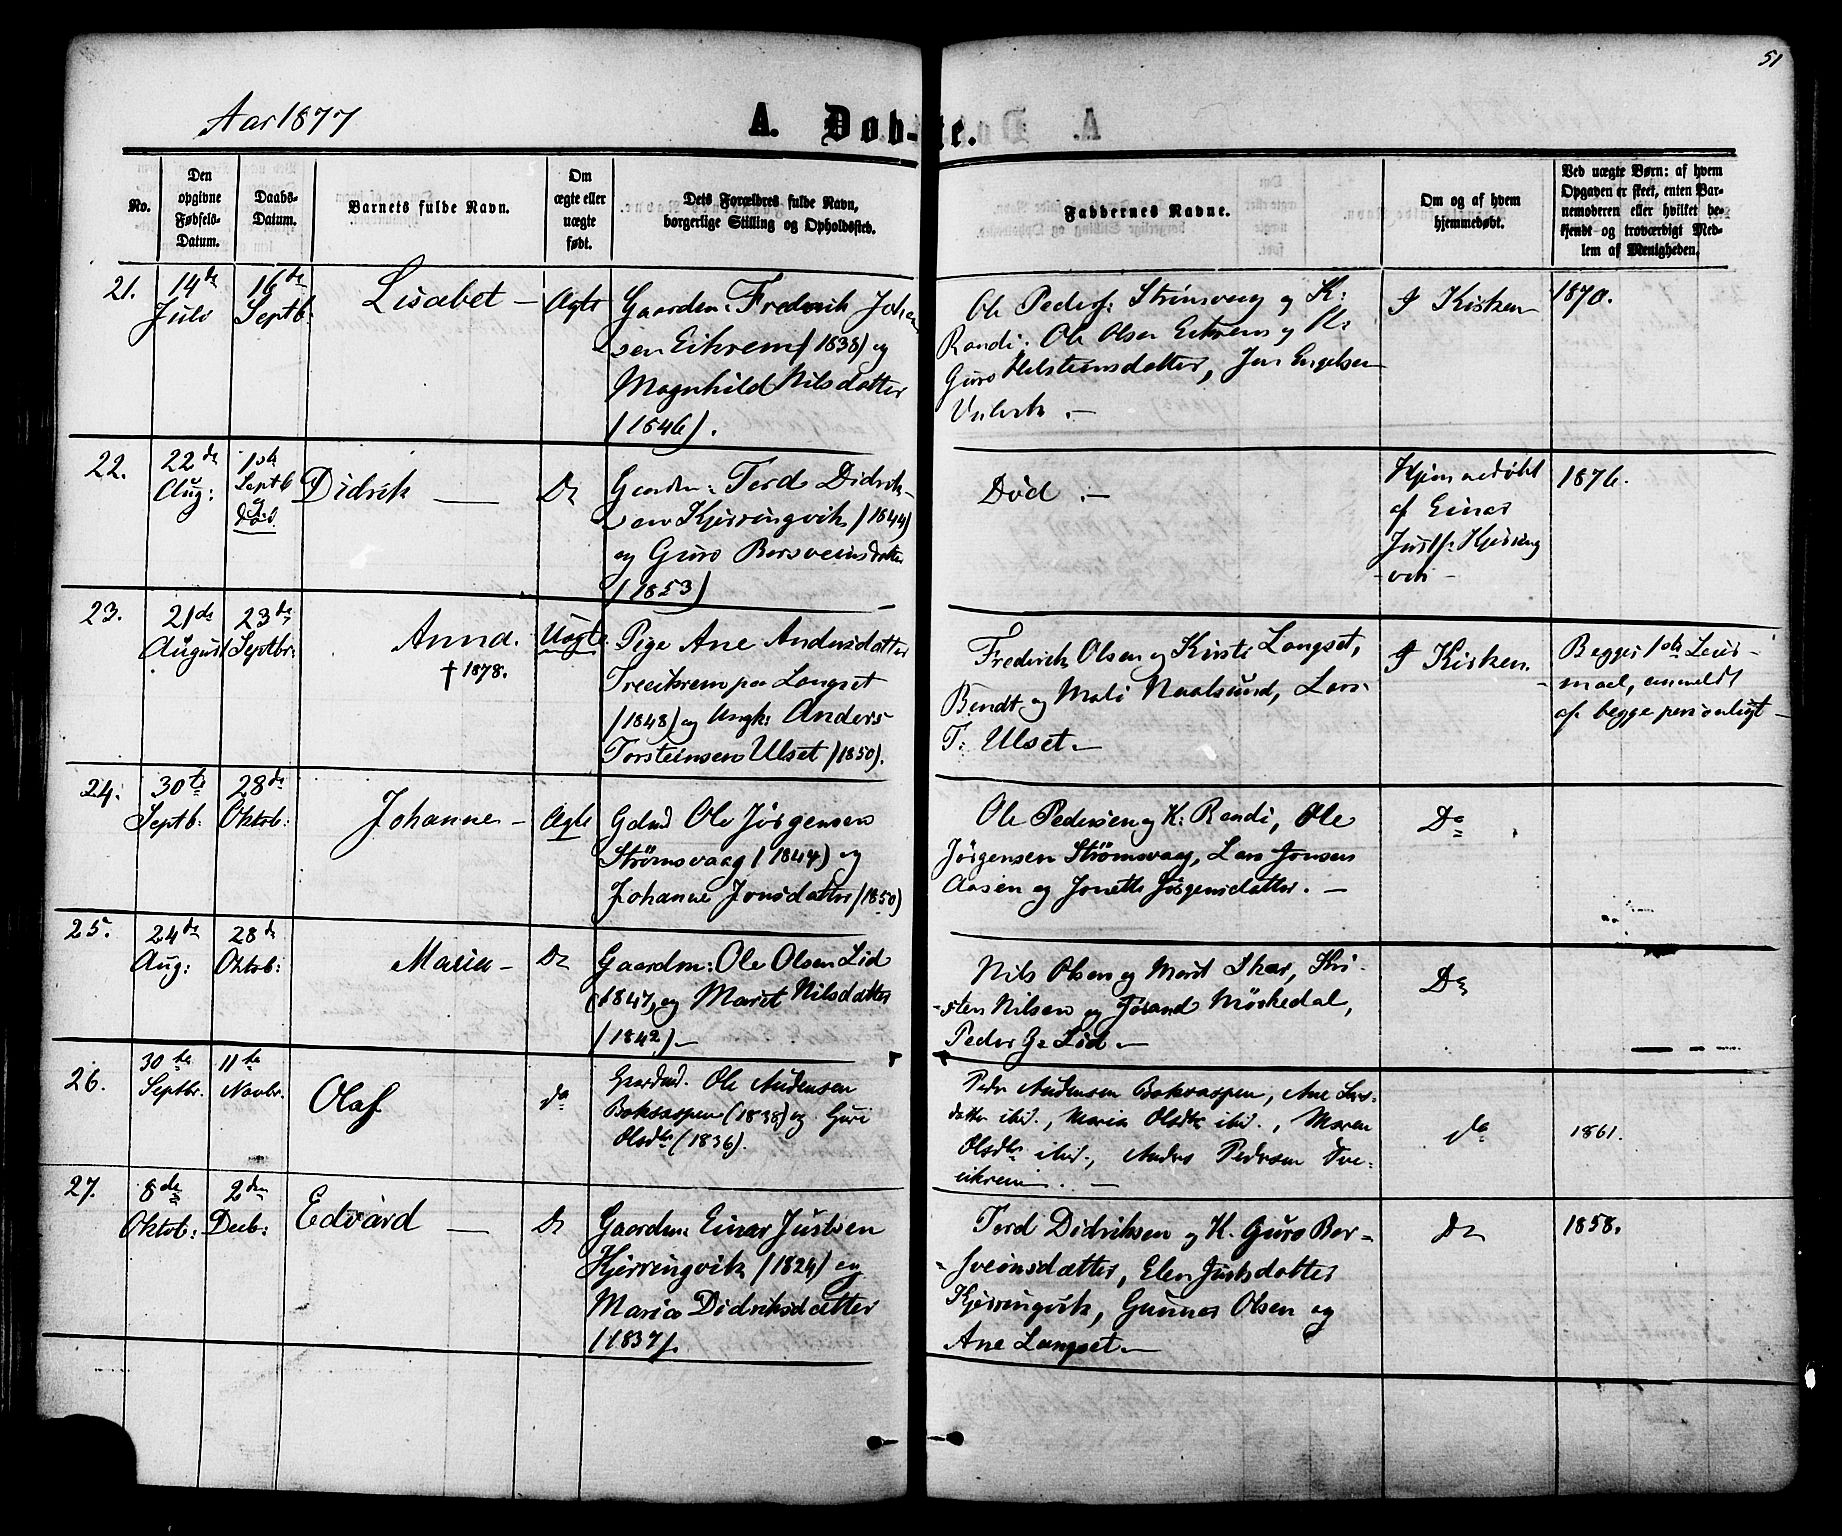 51
Aar 1877
A. Døb-te.
No.
Den opgivne Fødsels-Datum.
Daabs-Datum.
Barnets fulde Navn.
Om ægte eller uægte født.
Dets Forældres fulde Navn, borgerlige Stilling og Opholdssted.
Faddernes Navne.
Om og af hvem hjemmedøbt.
Ved uægte Børn: af hvem Opgaven er skeet, enten Barnemoderen eller hvilket bekjendt og troværdigt Medlem af Menigheden.
21.
14de
Juli
16de
Septb:
Lisabet —
Ægte
Gaardm: Frederik Johan
sen Eikrem (1838) og
Magnhild Nilsdatter
(1846).
Ole Peders: Strömsvaag og K:
Randi. Ole Olsen Eikrem og K:
Guro Halsteinsdatter, Jon Engelsen
I Kirken
1870.
22.
22de
Aug:
1ste
Septb
og
Død.
Didrik —
Do
Gaardm: Terd Didrik-
sen Kjerringvik (1844)
og Guro Bersveinsdatter
(1853)
Död. —
Hjemmedøbt
af Einar
Justs: Kjerring
vik —
1876.
23.
21de
August
23de
Septbr:
Anna.
† 1878.
Uægte
Pige Ane Andersdatter
Treeikrem paa Langset
(1848) og Ungk: Anders
Torsteinsen Ulset (1850).
Frederik Olsen og Kirsti Langset,
Bendt og Mali Naalsund, Lars
T: Ulset —
I Kirken.
Begges 1ste Leier-
maal, anmeldt
af begge personligt —
24.
30te
Septb:
28de
Oktob:
Johanne —
Ægte
Gdmd Ole Jörgensen
Strömsvaag (1844) og
Johanne Jonsdatter (1850)
Ole Pedersen og K: Randi, Ole
Jörgensen Strömsvaag, Lars Jonsen
Aasen og Jonette Jörgensdatter. —
Do
25.
24de
Aug:
28de
Oktob:
Maria —
Do
Gaardm: Ole Olsen Lid
(1847) og Maret Nilsdatter
(1842) —
Nils Olsen og Maret Skar, Kri-
sten Nilsen og Jörand Mörkedal,
Peder G: Lid —
Do
26.
30te
Septbr.
11te
Novbr.
Olaf
do
Gaardmd. Ole Audensen
Boksaspen (1838) og Guri
Olsdtr (1836).
Peder Audensen Boksaspen, Ane Lars-
datter ibid., Maria Olsdtr ibid., Maren
Olsdtr ibid., Anders Pedersen Tre-
eikrem. —
do
1861.
27.
8de
Oktob:
2den
Decb:
Edvard —
Do
Gaardm: Einar Justsen
Kjerringvik (1824) og
Maria Didriksdatter
(1837).
Terd Didriksen og K. Guro Ber-
sveinsdatter, Elen Justsdatter
Kjerringvik, Gunnar Olsen og
Ane Langset. —
Do
1858.